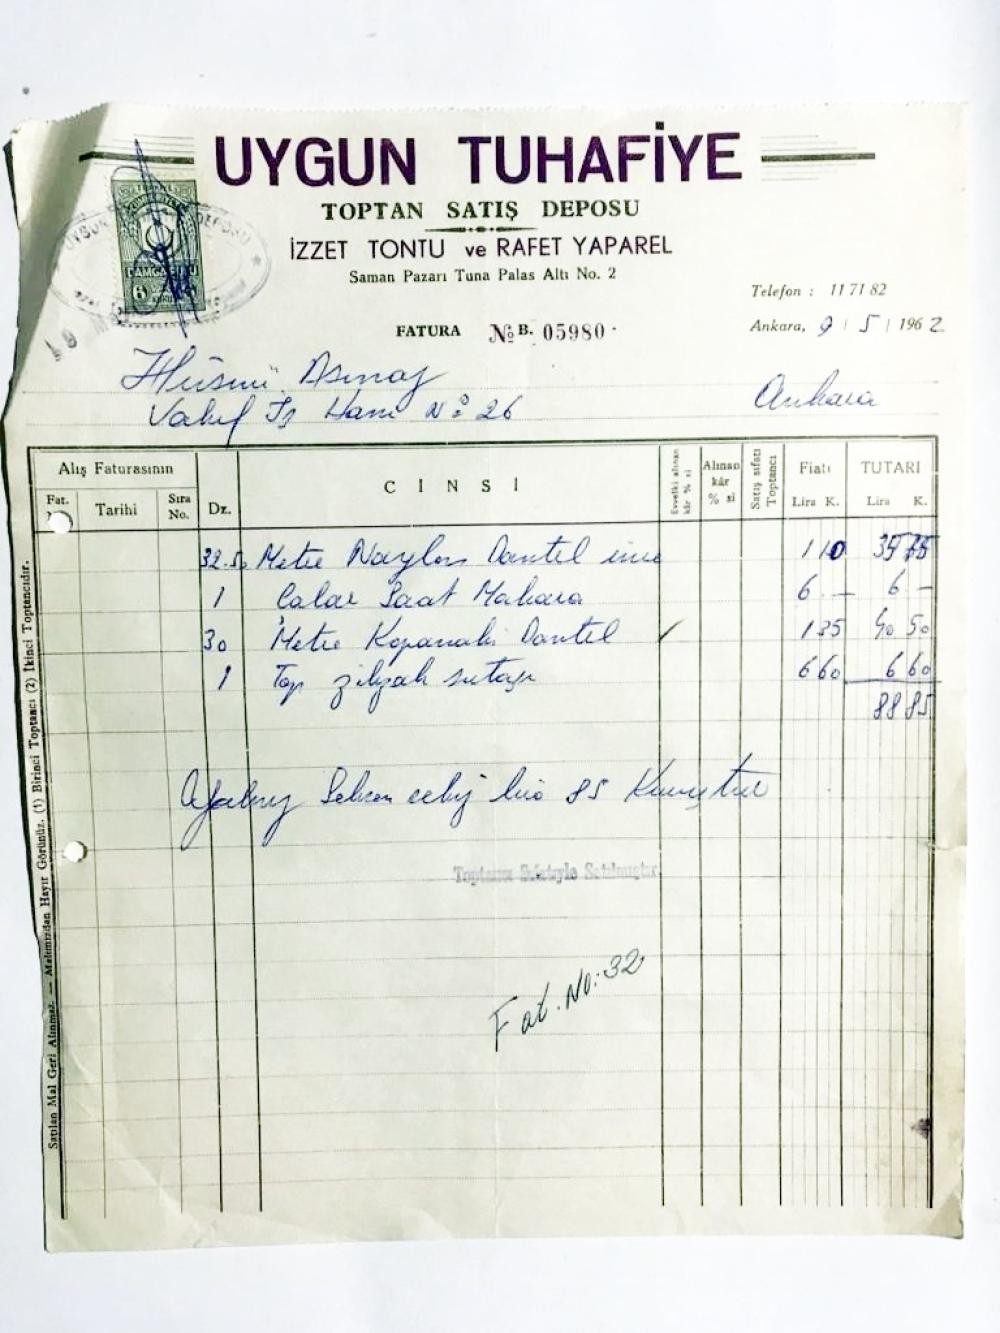 UYGUN TUHAFİYE
TOPTAN SATIŞ DEPOSU
İZZET TONTU ve RAFET YAPAREL
Saman Pazarı Tuna Palas Altı No. 2
DAMGA PULU
6
Telefon : 11 71 82
FATURA № B. 05980
Ankara, 9 / 5 / 1962
Hüsnü
Ankara
Vakıf İş Hanı No 26
Alış Faturasının
Fat. Tarihi Sıra No. Dz. CİNSİ Evvelki alınan kâr % si Alınan kâr % si Satış sıfatı Toptancı Fiatı Lira K. TUTARI Lira K.
32.50 Metre Naylon Dantel ince 110 35 75
1 Saat Makara 6.— 6 —
30 Metre Kopanaki Dantel 135 40 50
1 Top sutaşı 6 60 6 60
88 85
Yalnız Seksen sekiz lira 85 Kuruştur
Toptancı Sıfatiyle Satılmıştır.
Fat. No: 32
Satılan Mal Geri Alınmaz. — Malımızdan Hayır Görünüz. (1) Birinci Toptancı (2) İkinci Toptancıdır.